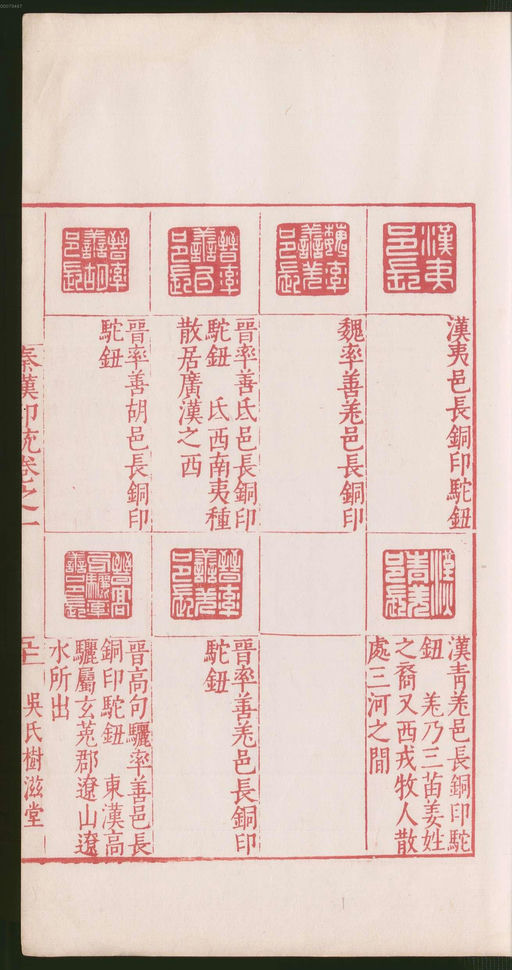 00079487
漢夷
邑長
漢夷邑長銅印駝鈕
魏率
善羌
邑長
魏率善羌邑長銅印
晉率
善氐
邑長
晉率善氐邑長銅印
駝鈕 氐西南夷種
散居廣漢之西
晉率
善胡
邑長
晉率善胡邑長銅印
駝鈕
漢
青羌
邑長
漢青羌邑長銅印駝
鈕 羌乃三苗姜姓
之裔又西戎牧人散
處三河之間
晉率
善羌
邑長
晉率善羌邑長銅印
駝鈕
晉高
句驪率
善邑長
晉高句驪率善邑長
銅印駝鈕 東漢高
驪屬玄菟郡遼山遼
水所出
秦漢印統卷之一
吳氏樹滋堂